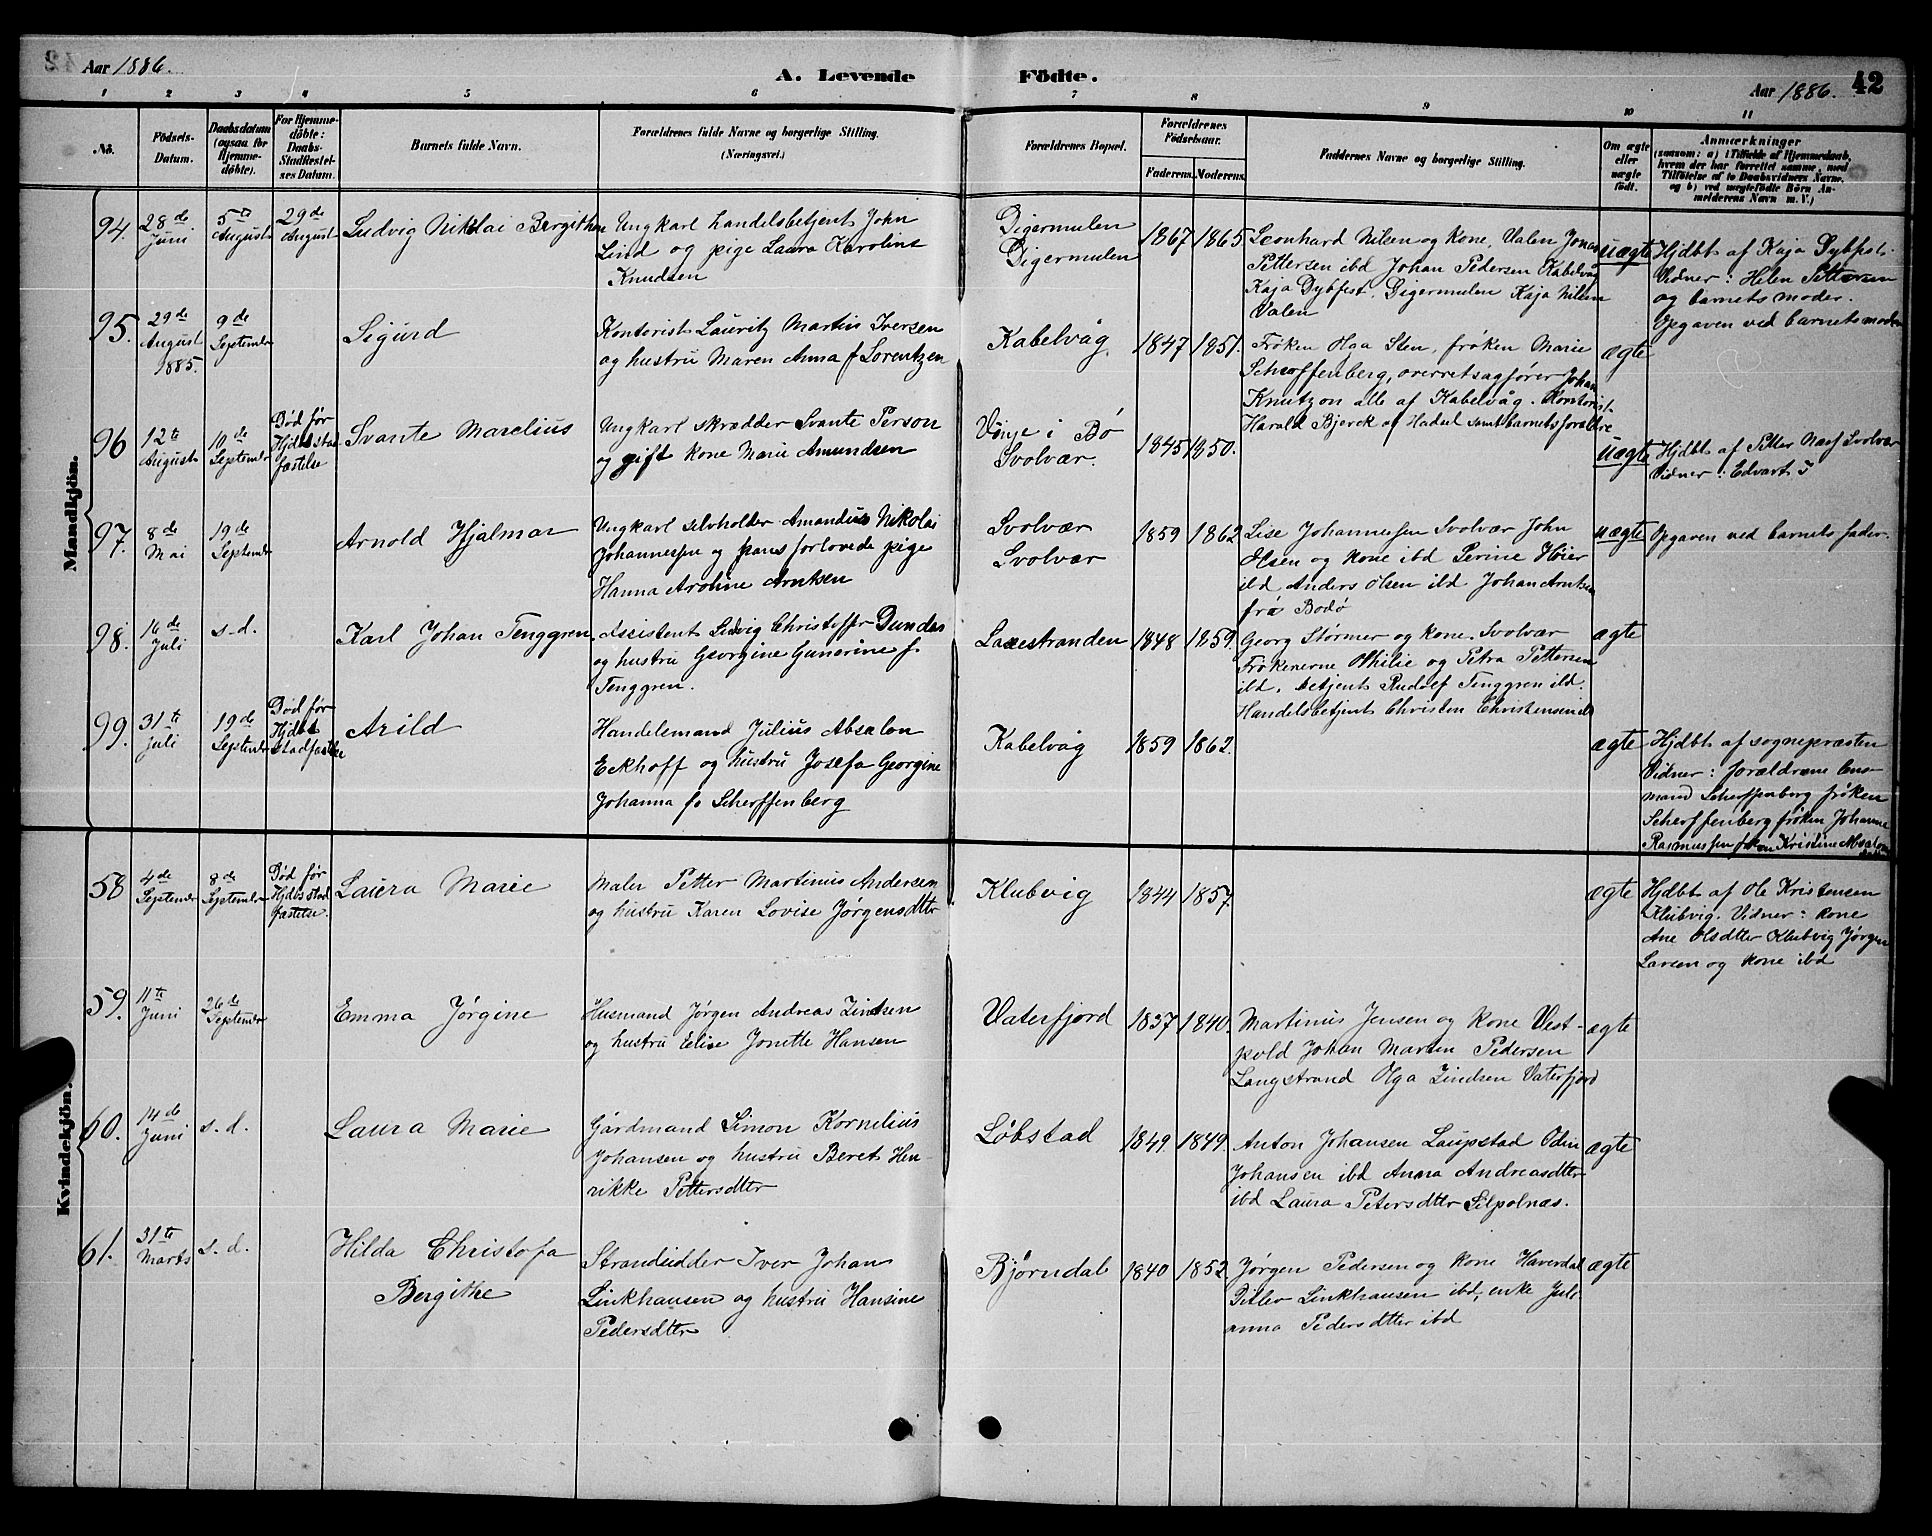 Aar 1886.
A. Levende Födte.
Aar 1886. 42
1 2 3 4 5 6 7 8 9 10 11
No.
Födsels-
Datum.
Daabsdatum
(ogsaa for
Hjemme-
döbte).
For Hjemme-
döbte:
Daabs-
Stadfæstel-
ses Datum.
Barnets fulde Navn.
Forældrenes fulde Navne og borgerlige Stilling.
(Næringsvei.)
Forældrenes Bopæl.
Forældrenes
Födselsaar.
Faderens. Moderens.
Faddernes Navne og borgerlige Stilling.
Om ægte
eller
uægte
født.
Anmærkninger
(saasom: a) i Tilfælde af Hjemmedaab,
hvem der har forrettet samme, med
Tilföielse af to Daabsvidners Navne,
og b) ved uægtefödte Børn An-
melderens Navn m. V.)
Mandkjön.
94.
28de
Juni
5te
August
29de
August
Ludvig Nikolai Bergithon
Ungkarl handelsbetjent John
Lind og pige Laura Karoline
Knudsen
Digermulen
Digermulen
1867 1865
Leonhard Nilsen og kone, Valen Jonas
Pettersen ibd Johan Pedersen Kabelvåg
Kaja Dybfest, Digermulen Kaja Nilsen
Valen
uægte
Hjdbt af Kaja Dybfest.
Vidner: Helen Pettersen
og barnets moder.
Opgaven ved barnets moder
95.
29de
August
1885.
9de
September
Sigurd
Kontorist Lauritz Martin Iversen
og hustru Maren Anna f. Lorentzen
Kabelvåg
1847 1851.
Frøken Olga Sten, frøken Marie
Scherffenberg, overretsagfører Johan
Knutzon alle af Kabelvåg. Kontorist
Harald Bjerck af Hadsel samt barnets forældre
ægte
96
12te
August
10de
September
Død før
Hjdbs stad
fæstelse
Svante Marelius
Ungkarl skrædder Svante Person
og gift kone Marie Amundsen
i Bø
Svolvær.
1845 1850.
Uægte
Hjdbt af Petter Svolvær
Vidner: Edvart
97.
8de
Mai
19de
September
Arnold Hjalmar
Ungkarl selvholder Amandus Nikolai
Johannessen og hans forlovede pige
Hanna Aroline Arntsen
Svolvær
Svolvær
1859 1862
Lise Johannessen Svolvær John
Olsen og kone ibd Perine Høier
ibd Anders Olsen ibd Johan Arntsen
frå Bodø
uægte
Opgaven ved barnets fader.
98.
16de
Juli
s. d.
Karl Johan Tenggren
Assistent Ludvig Christoffer Dundas
og hustru Georgine Gunerine f.
Tenggren.
Laxestranden
1848 1859.
Georg Størmer og kone. Svolvær
Frøkenerne Othilie og Petra Pettersen
ibd. betjent Rudolf Tenggren ibd.
Handelsbetjent Christen Christensen ibd
ægte
99.
31te
Juli
19de
September
Død før
Hjdbt
Stadfæstelse
Arild
Handelsmand Julius Absalon
Eckhoff og hustru Josefa Georgine
Johanna f. Scherffenberg
Kabelvåg
1859 1862.
ægte
Hjdbt af sognepræsten
Vidner: forældrene lens-
mand Scherffenberg frøken
Scherffenberg frøken Johanne
Rasmussen frøken Kristine Absalon
Kvindekjön.
58
4de
September
8de
September
Død før
Hjdbs stad
fæstelse.
Laura Marie
Maler Petter Martinus Andersen
og hustru Karen Lovise Jørgensdtter
Klubvig
1844 1857.
ægte
Hjdbt af Ole Kristensen
Klubvig. Vidner: kone
Ane Olsdtter Klubvig Jørgen
Larsen og kone ibd
59.
11te
Juni
26de
September
Emma Jørgine
Husmand Jørgen Andreas Zindsen
og hustru Elise Jonette Hansen
Vaterfjord
1837 1840.
Martinus Jensen og kone Vest-
pold Johan Marten Pedersen
Langstrand Olga Zindsen Vaterfjord
ægte
60.
14de
Juni
s. d.
Laura Marie
Gårdmand Simon Kornelius
Johansen og hustru Beret Hen-
rikke Pettersdtter
Løbstad
1849. 1849.
Anton Johansen Laupstad Odin
Johansen ibd Anna Andreasdtter
ibd Laura Petersdtter Silpolnæs.
ægte
61.
31te
Marts
s. d.
Hilda Christofa
Bergitke
Strandsidder Iver Johan
Linkhausen og hustru Hansine
Pedersdtter
Bjørndal
1840 1852.
Jørgen Pedersen og kone Haverdal
Ditlev Linkhausen ibd, enke Juli-
anna Pedersdtter ibd
ægte